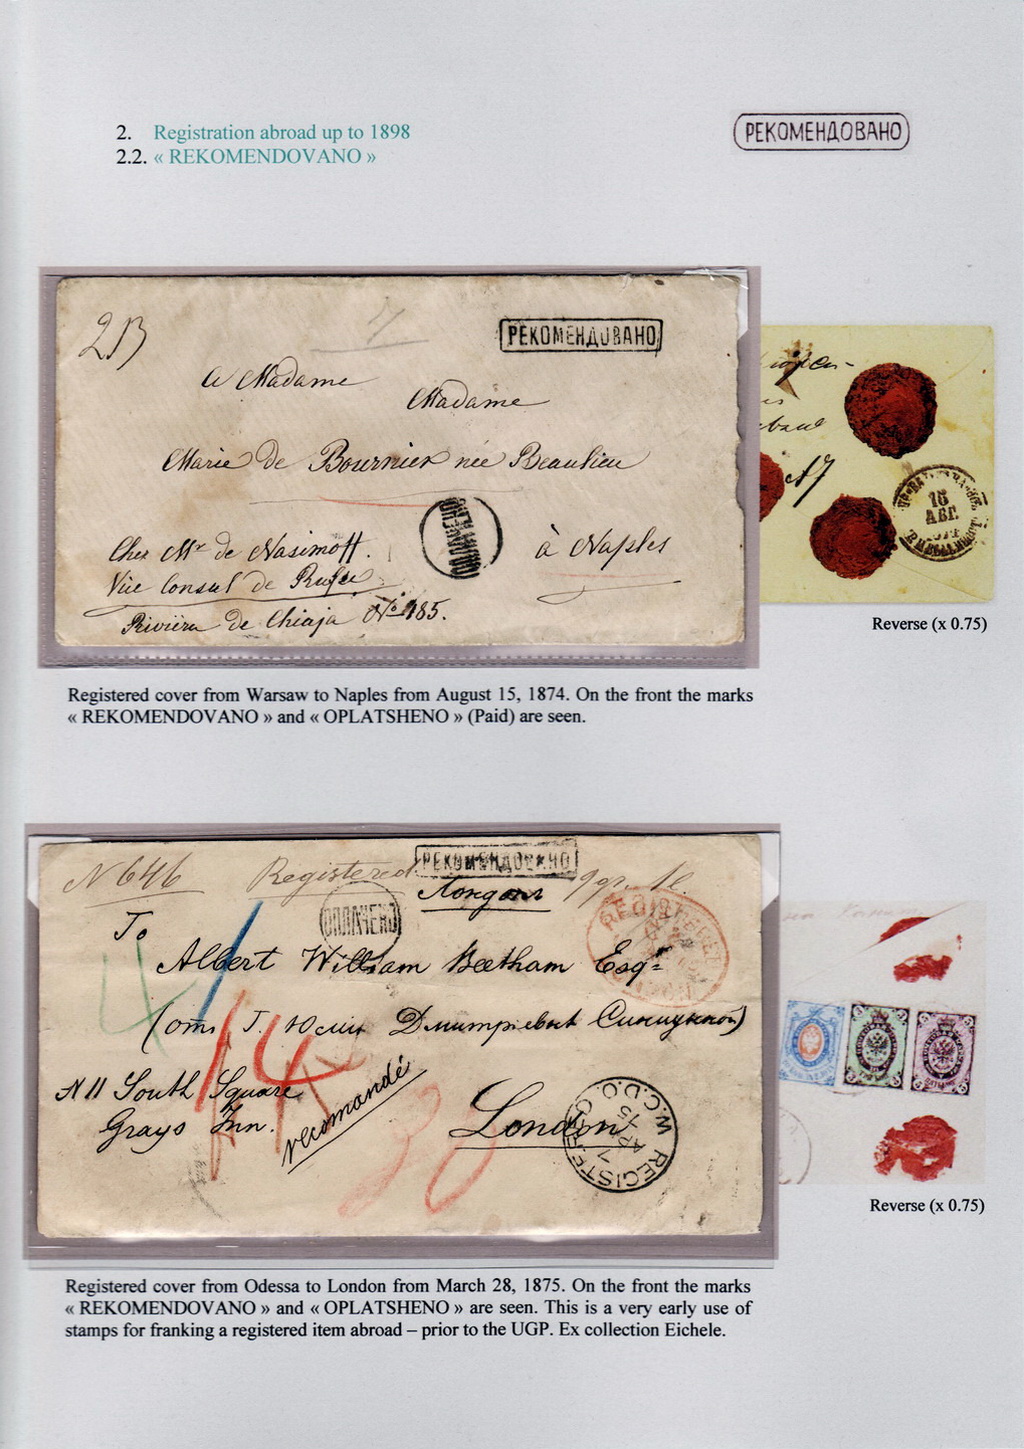 2. Registration abroad up to 1898
2.2. « REKOMENDOVANO »
РЕКОМЕНДОВАНО
2
РЕКОМЕНДОВАНО
Madame
Madame
Marie de Bournier née Beaulieu
ОПЛАЧЕНО
à Naples
Chez Mr de Nasimoff.
Vice Consul de Russie
Riviera de Chiaja No 185.
15
АВГ.
Reverse (x 0.75)
Registered cover from Warsaw to Naples from August 15, 1874. On the front the marks
« REKOMENDOVANO » and « OPLATSHENO » (Paid) are seen.
N 646 Registered
РЕКОМЕНДОВАНО
Лондонъ
ОПЛАЧЕНО
REGISTERED
To
Albert William Beetham Esqre
(отъ Г. Юліи Дмитріевны Синицыной)
N 11 South Square
Grays Inn.
recomandé
London
REGISTERED
W.C.D.O.
7
AP
75
14
Reverse (x 0.75)
Registered cover from Odessa to London from March 28, 1875. On the front the marks
« REKOMENDOVANO » and « OPLATSHENO » are seen. This is a very early use of
stamps for franking a registered item abroad – prior to the UGP. Ex collection Eichele.